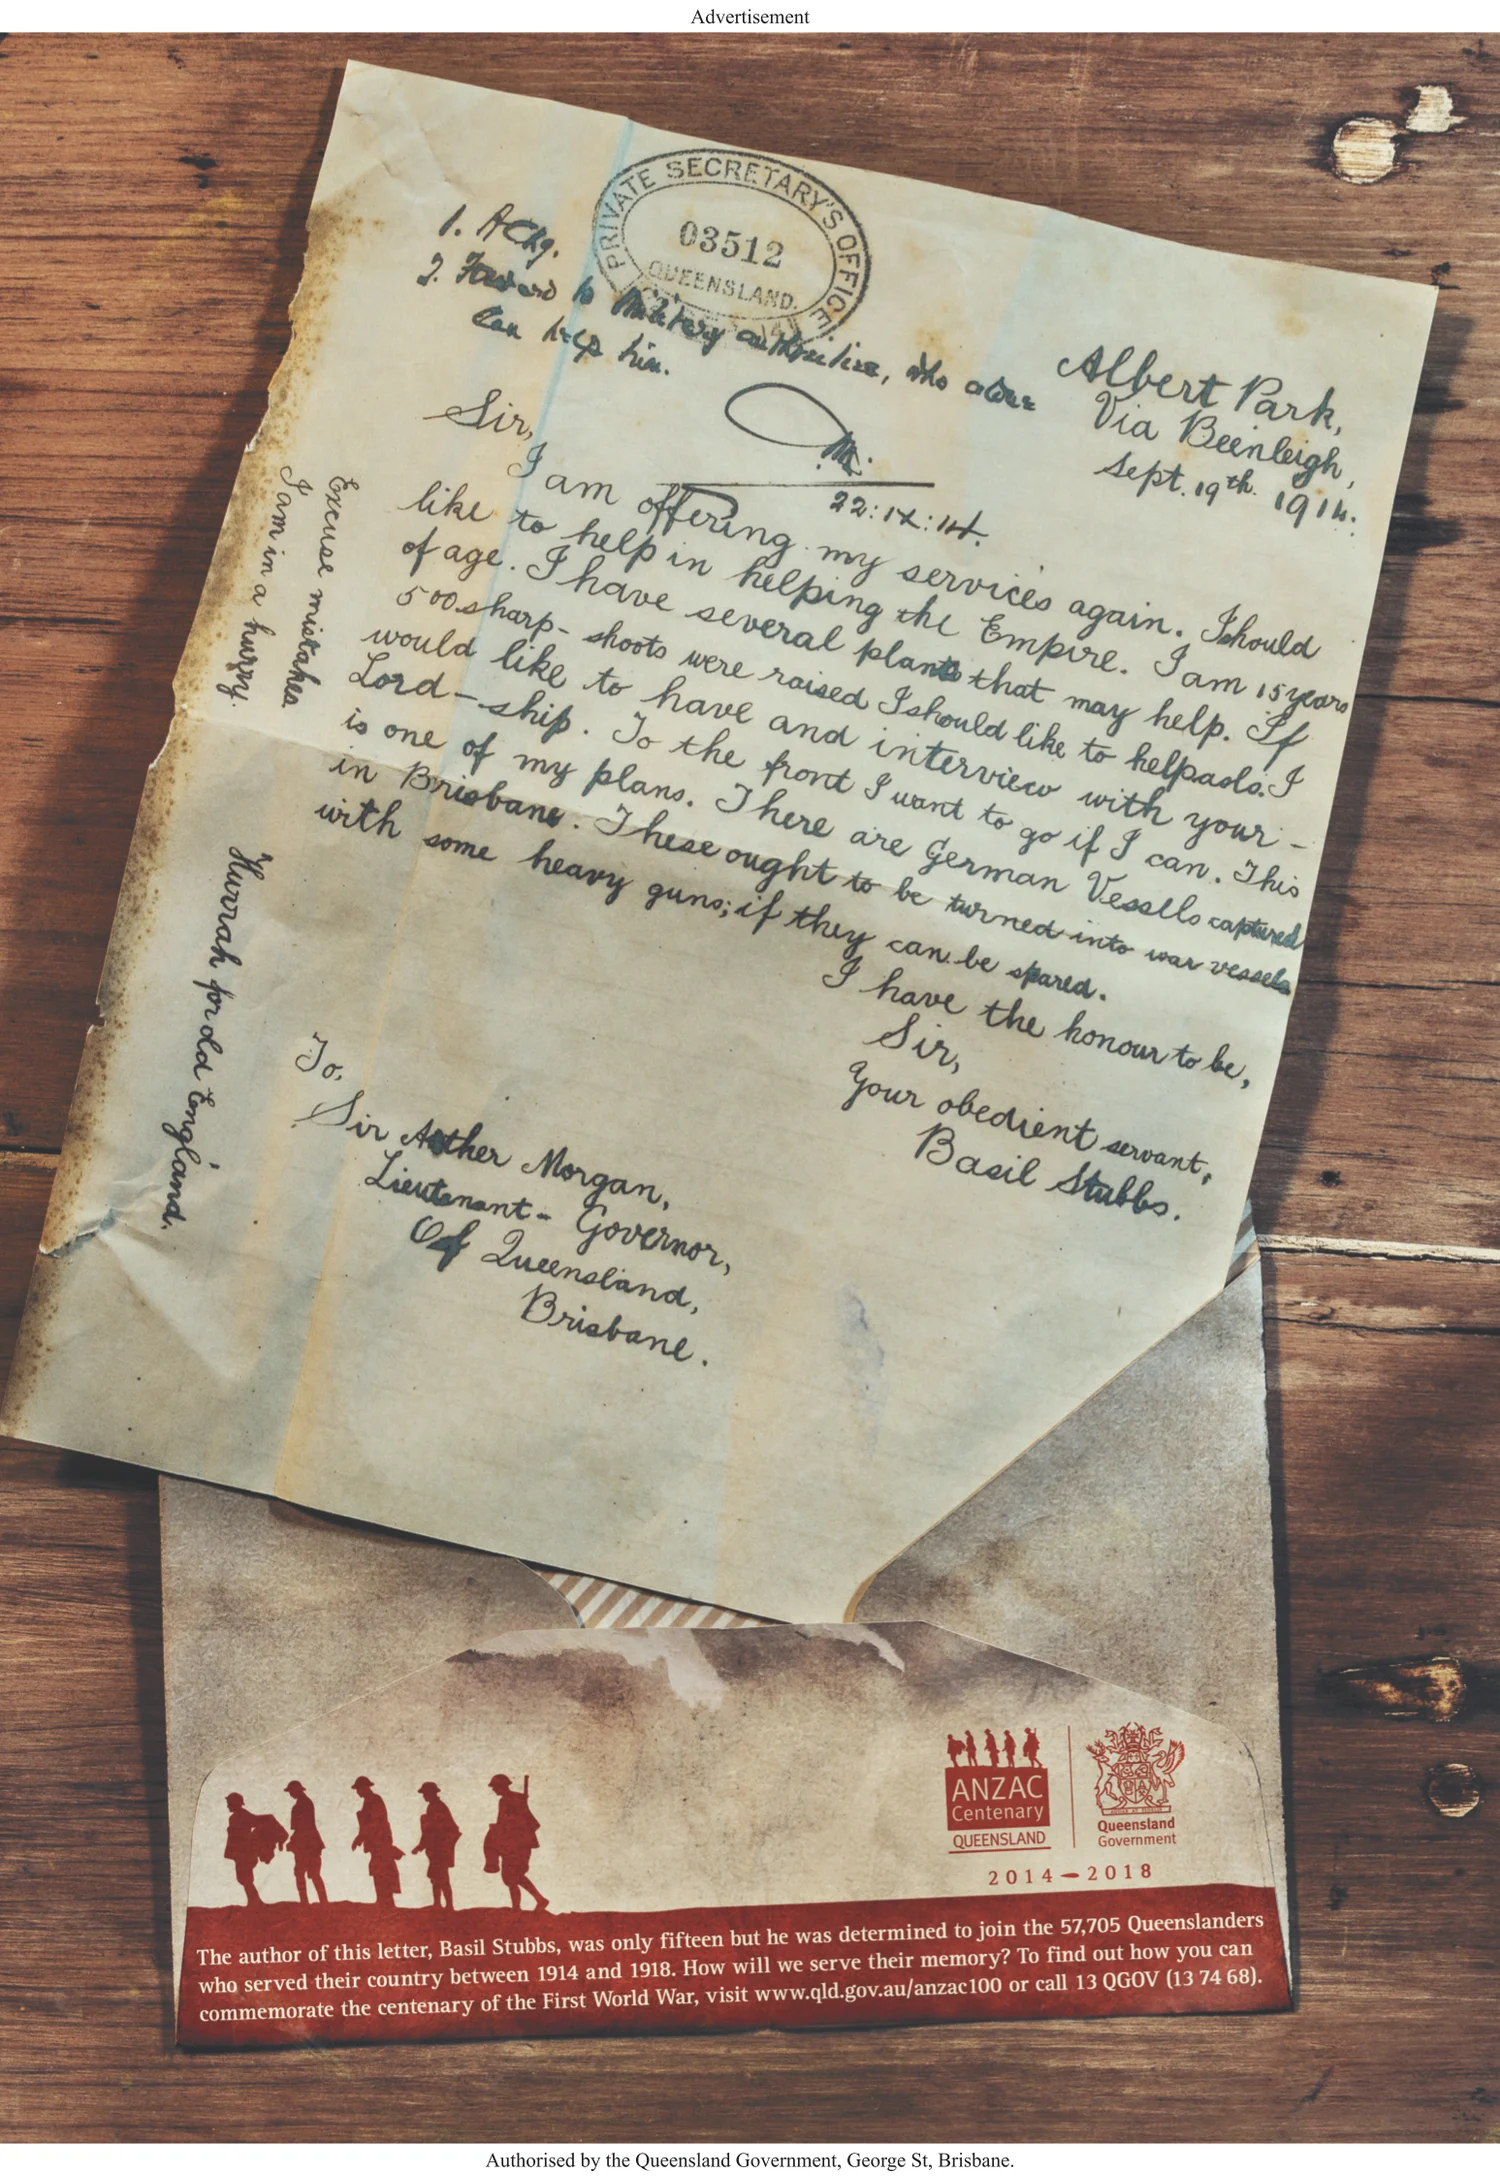 Advertisement
PRIVATE SECRETARY'S OFFICE
03512
QUEENSLAND.
1. Ackg.
2. Forward to Military authorities, who alone
can help him.
M.
Albert Park,
Via Beenleigh,
Sept. 19th. 1914.
Sir,
I am offering my services again. I should
like to help in helping the Empire. I am 15 years
of age. I have several plans that may help. If
500 sharp-shoots were raised I should like to help also. I
would like to have and interview with your-
Lord-ship. To the front I want to go if I can. This
is one of my plans. There are German Vessels captured
in Brisbane. These ought to be turned into war vessels
with some heavy guns; if they can be spared.
I have the honour to be,
Sir,
Your obedient servant,
Basil Stubbs.
To,
Sir Arther Morgan,
Lieutenant-Governor,
Of Queensland,
Brisbane.
Excuse mistakes
I am in a hurry.
Hurrah for old England.
ANZAC
Centenary
QUEENSLAND
Queensland
Government
2014–2018
The author of this letter, Basil Stubbs, was only fifteen but he was determined to join the 57,705 Queenslanders
who served their country between 1914 and 1918. How will we serve their memory? To find out how you can
commemorate the centenary of the First World War, visit www.qld.gov.au/anzac100 or call 13 QGOV (13 74 68).
Authorised by the Queensland Government, George St, Brisbane.